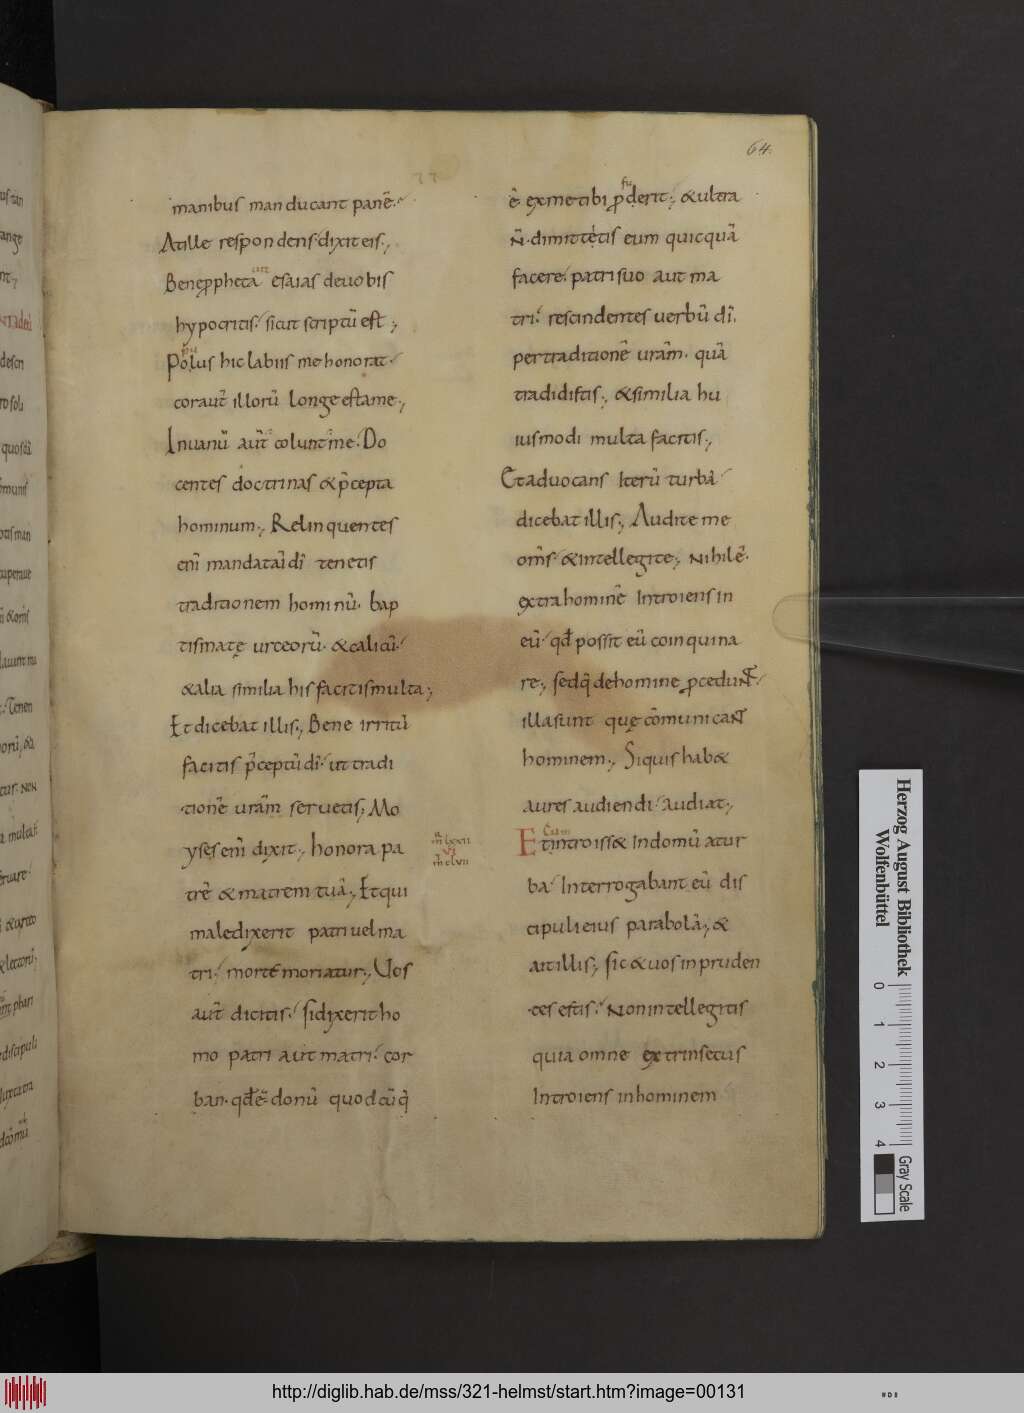 64.
manibus manducant panē.
At ille respondens dixit eis;
Bene ꝓpheta uit esaias de uobis
hypocritis. sicut scriptū est;
Popolus hic labiis me honorat.
cor aut̄ illorū longe est a me;
In uanū aut̄ colunt me. Do
centes doctrinas & p̄cepta
hominum; Relinquentes
eni mandata di tenetis
traditionem hominū. bap
tismatę urceorū. & calicū.
& alia similia his facitis multa;
Et dicebat illis; Bene irritū
facitis p̄ceptū di. ut tradi
tionē urām seruetis; Mo
yses eni dixit; honora pa
trē & matrem tuā; Et qui
maledixerit patri uel ma
tri. morte moriatur; Uos
aut̄ dicitis. si dixerit ho
mo patri aut matri. cor
ban. qđ ē donū quodcūq
ē ex me tibi ꝓderit; & ultra
fu
N̄. dimittetis eum quicquā
facere. patri suo aut ma
tri. rescindentes uerbū di.
per traditionē urām. quā
tradidistis; & similia hu
iusmodi multa facitis;
Et aduocans Iterū turbā
dicebat illis; Audite me
om̄s & intellegite; Nihil ē.
extra hominē Introiens in
eū. qđ possit eū coinquina
re; sed q̄ de homine ꝓcedunt
illa sunt quę cōmunicant
hominem; Siquis hab&
aures audiendi. audiat;
m lxxii
vi
m clvii
Cum
Et introiss& In domū a tur
ba. Interrogabant eū dis
cipuli eius parabolā; &
ait illis; sic & uos inpruden
tes estis. Non intellegitis
quia omne extrinsecus
Introiens in hominem
Herzog August Bibliothek
Wolfenbüttel
0 1 2 3 4
Gray Scale
http://diglib.hab.de/mss/321-helmst/start.htm?image=00131